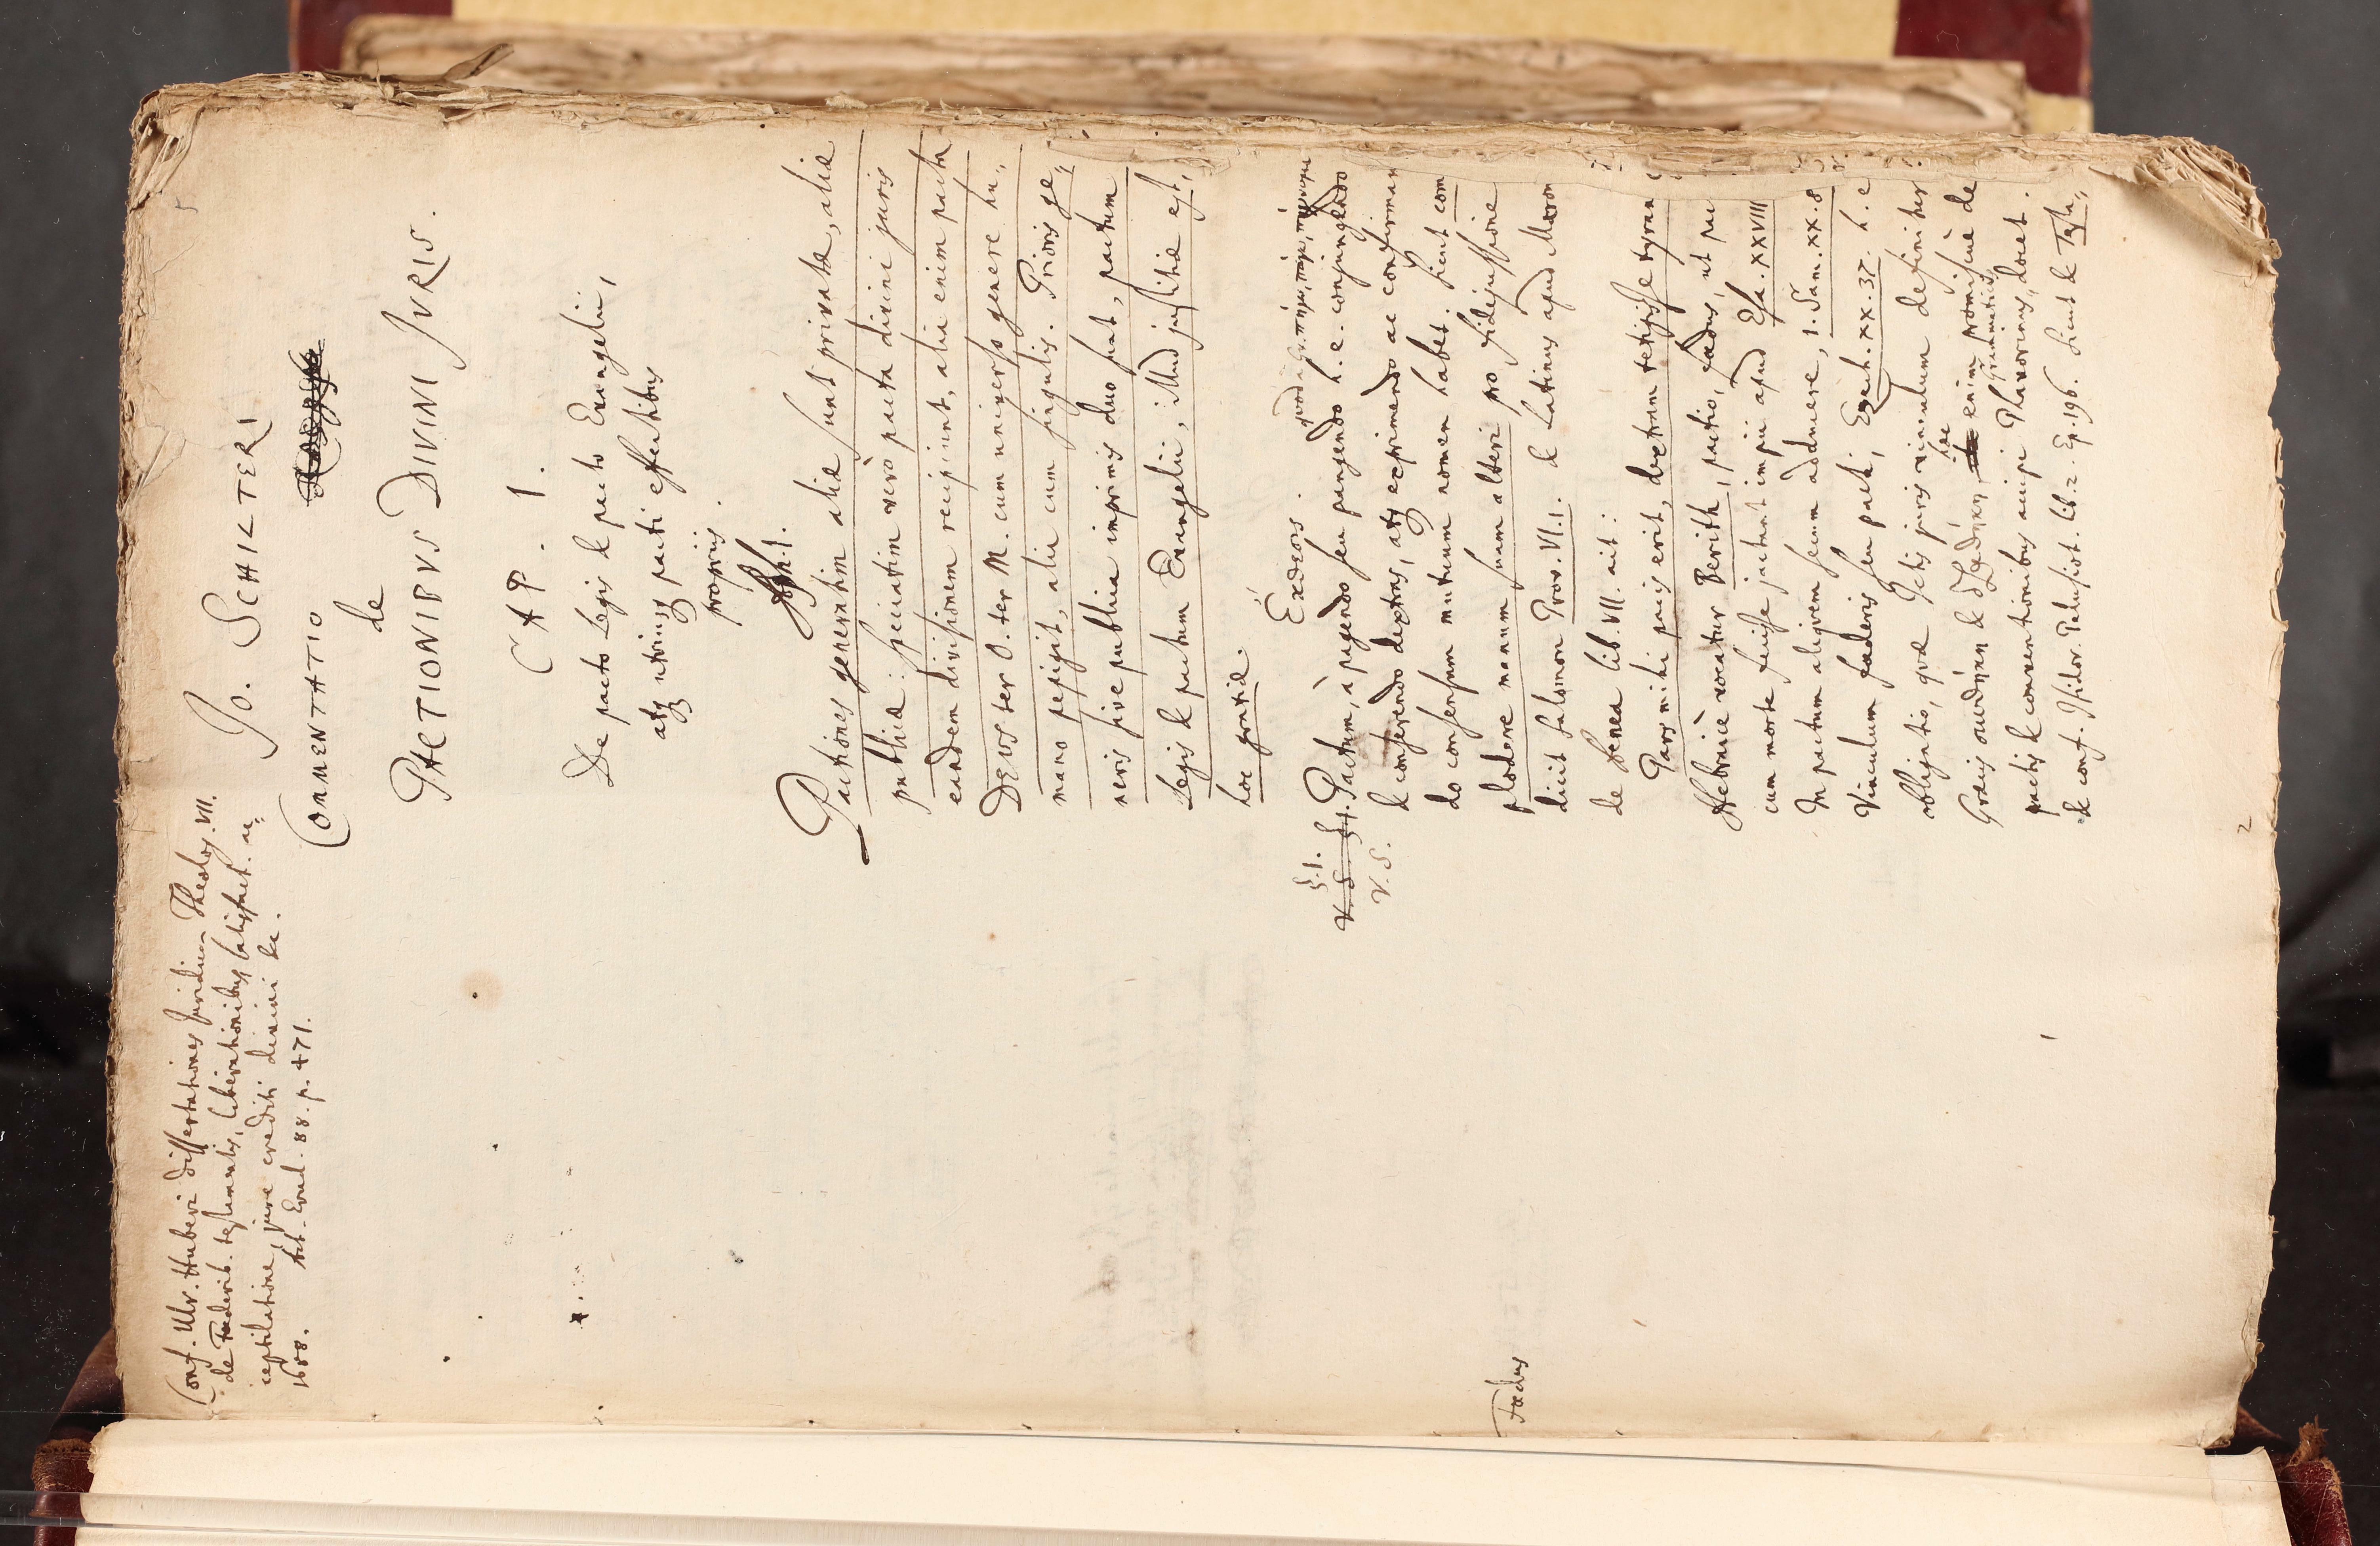 Conf. Ulr. Huberi dissertationes Juridico Theolog. VII.
de Foederib. testamentis, liberationibus satisfact. ac,,
ceptilatione, jure crediti divini &c.
1688. Act. Erud. 88. p. 471.
5
Jo. SCHILTERI
COMMENTATIO
de
PACTIONIBVS DIVINI JVRIS.
CAP. I.
De pacto Legis & pacto Evangelii,
atq utriusq pacti effectibus
propriis.
§ph. 1.
Pactiones generatim aliæ sunt privatæ, aliæ
publicæ: speciatim verò pacta divini juris
eandem divisionem recipiunt, alia enim pacta
DEUS ter O. ter M. cum universo genere hu,,
mano pepigit, alia cum singulis. Prioris ge,,
neris sive publica inprimis duo sunt, pactum
Legis & pactum Evangelii, illud justitiæ est,
hoc gratiæ.
Ἔκθεσις.
§. 1.
V. S. §. 1. Pactum, à pagendo seu pangendo h. e. conjungendo
V. S.
& conferendo dextras, atq exprimendo ac confirman
do consensum mutuum nomen habet. Sicut com
plodere manum suam alteri pro fidejussione
dicit Salomon Prov. VI. 1. & Latinus apud Maron
de Aenea lib. VII. ait:
Pars mihi pacis erit, dextram tetigisse tyran
Hebraicè vocatur Berith, pactio, fœdus, ut pac
cum morte fecisse jactant impii apud Esa. XXVIII
In pactum aliqvem secum adducere, 1. Sam. XX. 8
Vinculum fœderis seu pacti, Ezech. XX. 37. h. e
obligatio, qvæ Jctis juris vinculum definitur
Græcis συνθήκη & διαθήκη, hæc enim promiscuè de
pactis & conventionibus accipi Phavorinus docet.
& conf. Isidor. Pelusiot. lib. 2. Ep. 196. Sicut & Testa,,
Fœdus
2